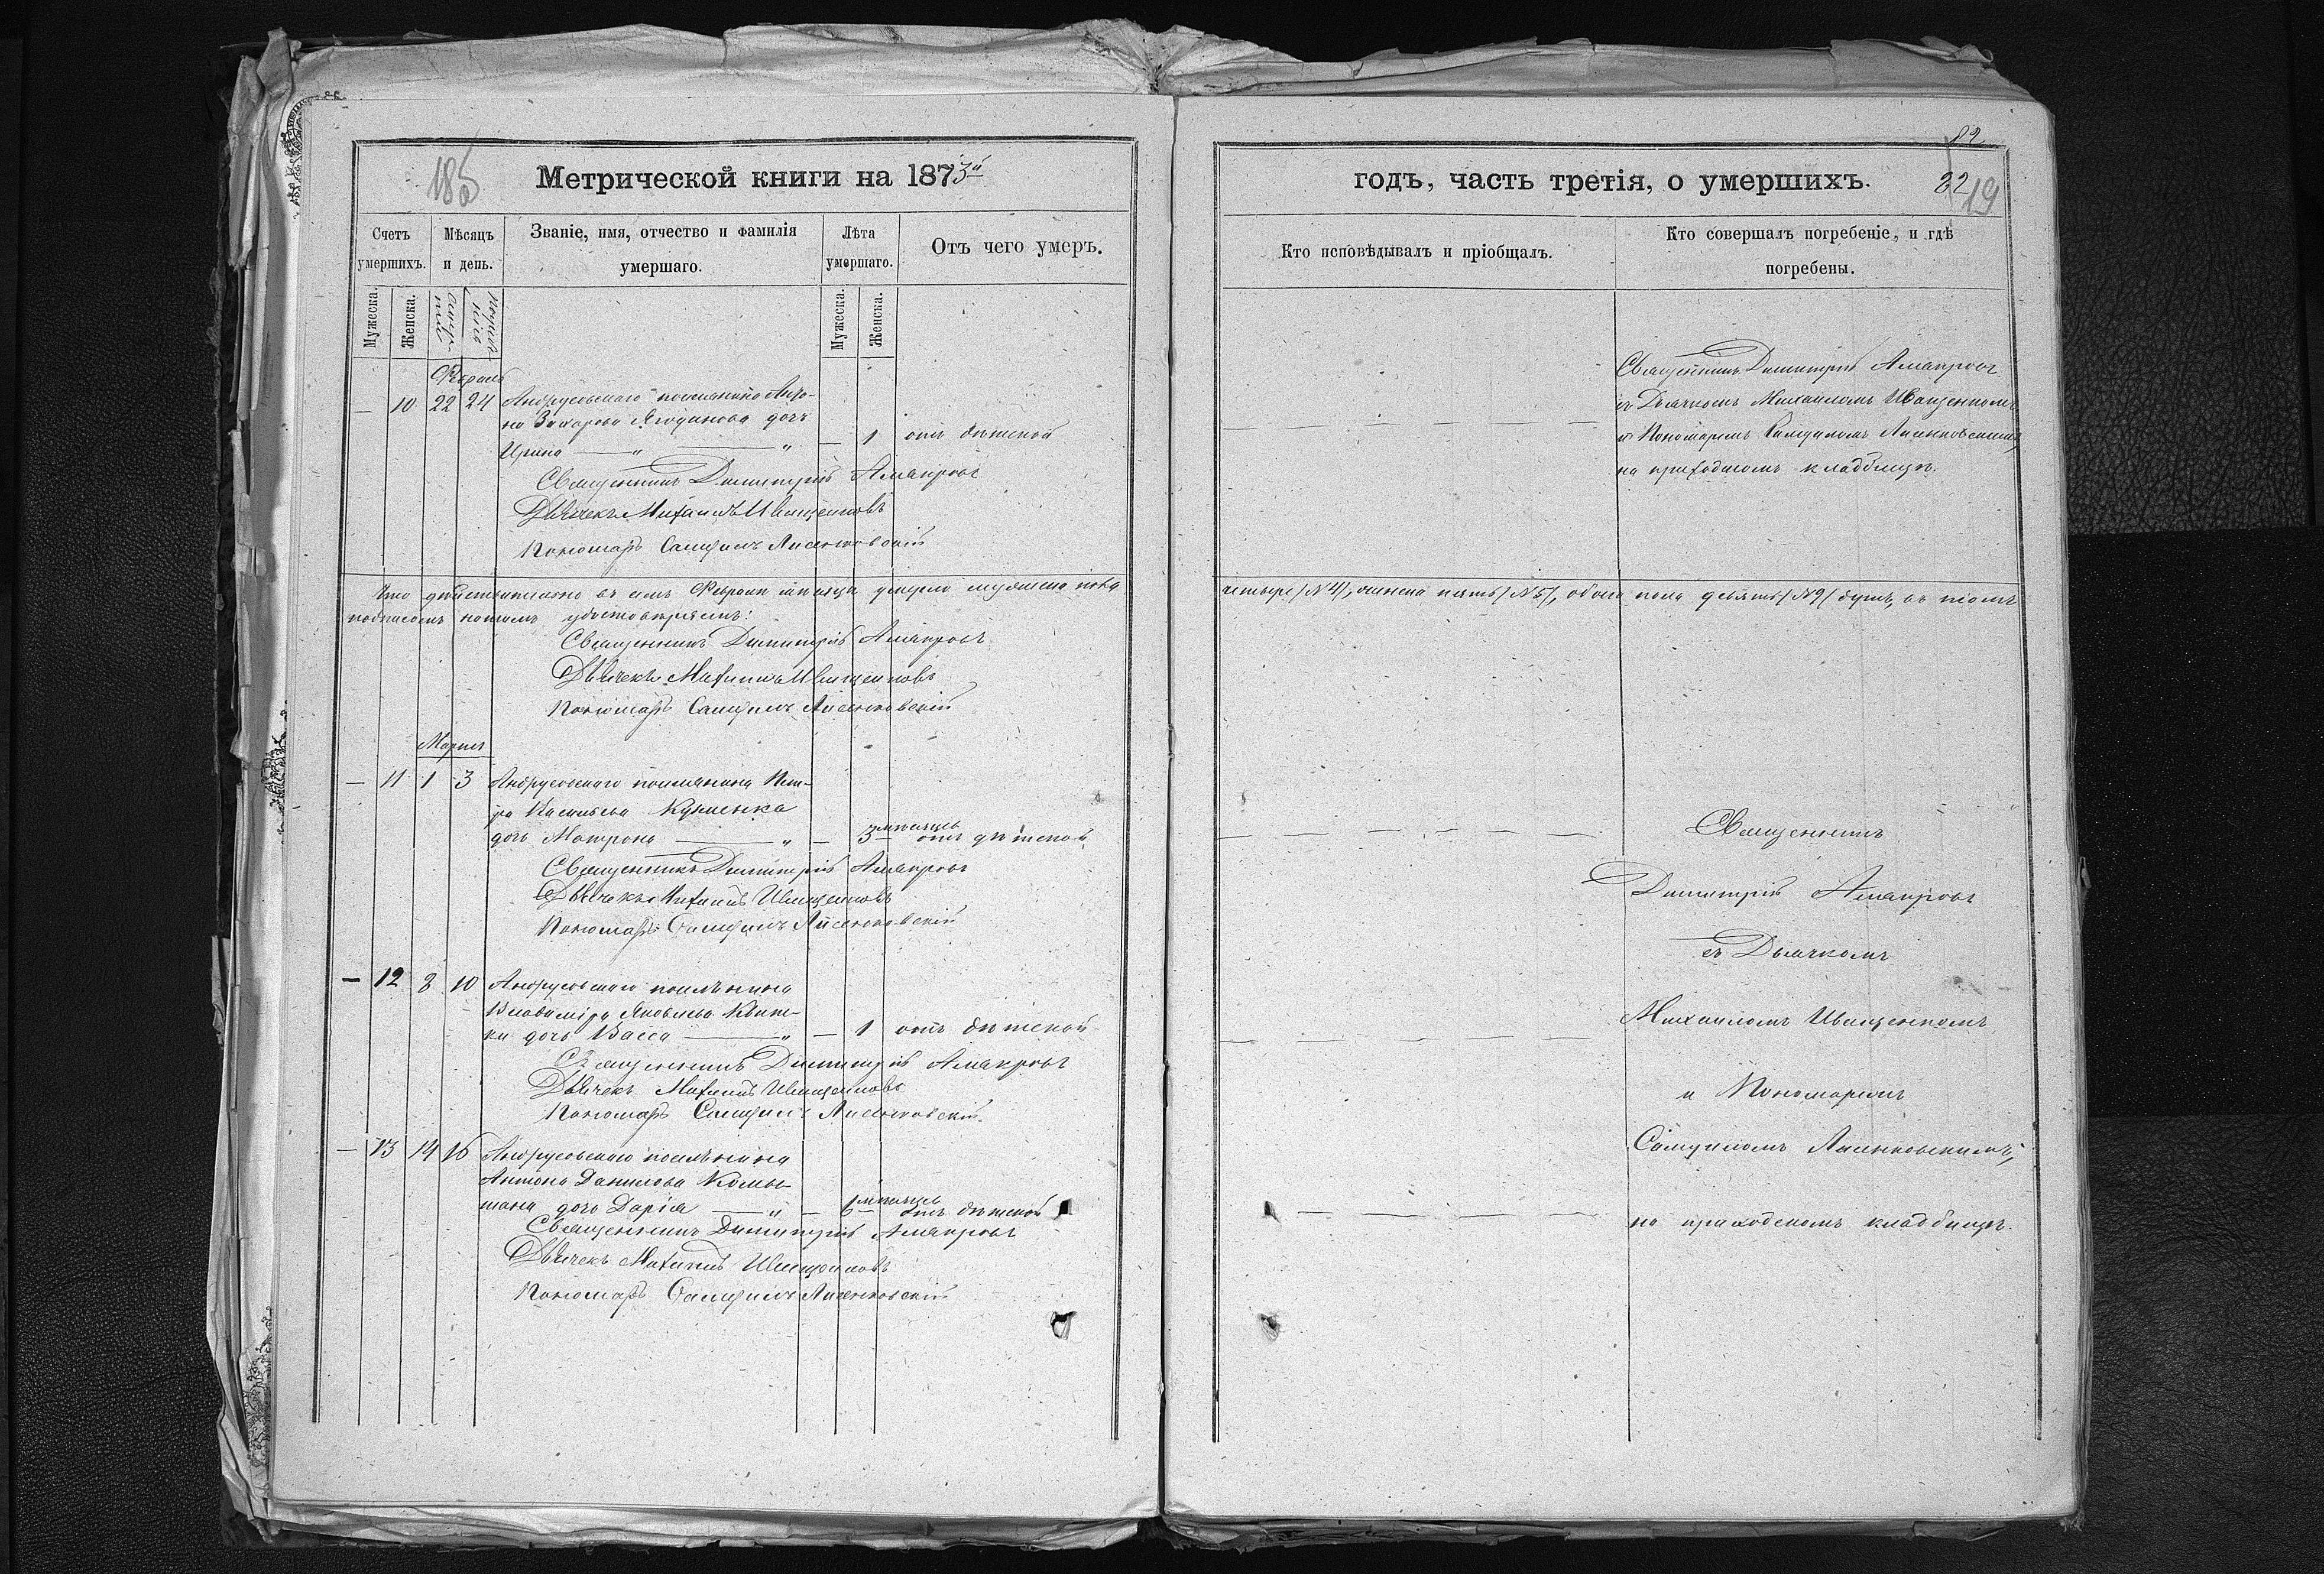 185
Метрической книги на 1873й
Счетъ умершихъ.
Мѣсяцъ и день.
Званіе, имя, отчество и фамилія умершаго.
Лѣта умершаго.
Отъ чего умеръ.
Мужеска.
Женска.
Мужеска.
Женска.
Февраль
— 10 22 24 Андрусовскаго поселянина
Захарова дочь
Ирина — „ — „ — 1 отъ дѣтской
Священникъ Димитрій
Дьячекъ Михаилъ Иващенковъ
Пономарь Самуилъ Лисенковскій
Что дѣйствительно въ семъ Февралѣ мѣсяцѣ умерло мужеска пола
подписомъ нашимъ удостовѣряемъ:
Священникъ Димитрій
Дьячекъ Михаилъ Иващенковъ
Пономарь Самуилъ Лисенковскій
Мартъ
— 11 1 3 Андрусовскаго поселянина Пет-
ра Васильева Куценка
дочь Матрона — „ — 3 мѣсяцъ отъ дѣтской
Священникъ Димитрій
Дьячекъ Михаилъ Иващенковъ
Пономарь Самуилъ Лисенковскій
— 12 8 10 Андрусовскаго поселянина
Владиміра Яковлева Квит-
ки дочь Васса — „ — 1 отъ дѣтской
Священникъ Димитрій
Дьячекъ Михаилъ Иващенковъ
Пономарь Самуилъ Лисенковскій
— 13 14 16 Андрусовскаго поселянина
Антона Данилова
дочь Дарія — „ — 6 мѣсяцъ отъ дѣтской
Священникъ Димитрій
Дьячекъ Михаилъ Иващенковъ
Пономарь Самуилъ Лисенковскій
82
годъ, часть третія, о умершихъ.
82
19
Кто исповѣдывалъ и пріобщалъ.
Кто совершалъ погребеніе, и гдѣ погребены.
Священникъ Димитрій
съ Дьячкомъ Михаиломъ Иващенкомъ
и Пономаремъ Самуиломъ Лисенковскимъ,
на приходскомъ кладбищѣ.
четыре /№4/, женска пять /№5/, обоего пола девять /№9/ душъ, въ томъ
Священникъ
Димитрій
съ Дьячкомъ
Михаиломъ Иващенкомъ
и Пономаремъ
Самуиломъ Лисенковскимъ,
на приходскомъ кладбищѣ.